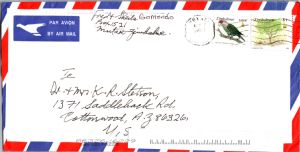 PAR AVION
BY AIR MAIL
Box 1521
Mutare, Zimbabwe
Zimbabwe
Zimbabwe
To
Dr. + Mrs. K-R. Stetson,
1371 Saddleback Rd.
Cottonwood, AZ 86326
U.S